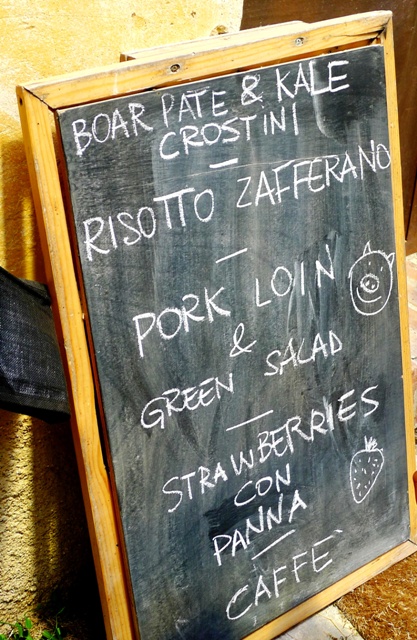 BOAR PATE & KALE
CROSTINI
RISOTTO ZAFFERANO
PORK LOIN
&
GREEN SALAD
STRAWBERRIES
CON
PANNA
CAFFE`